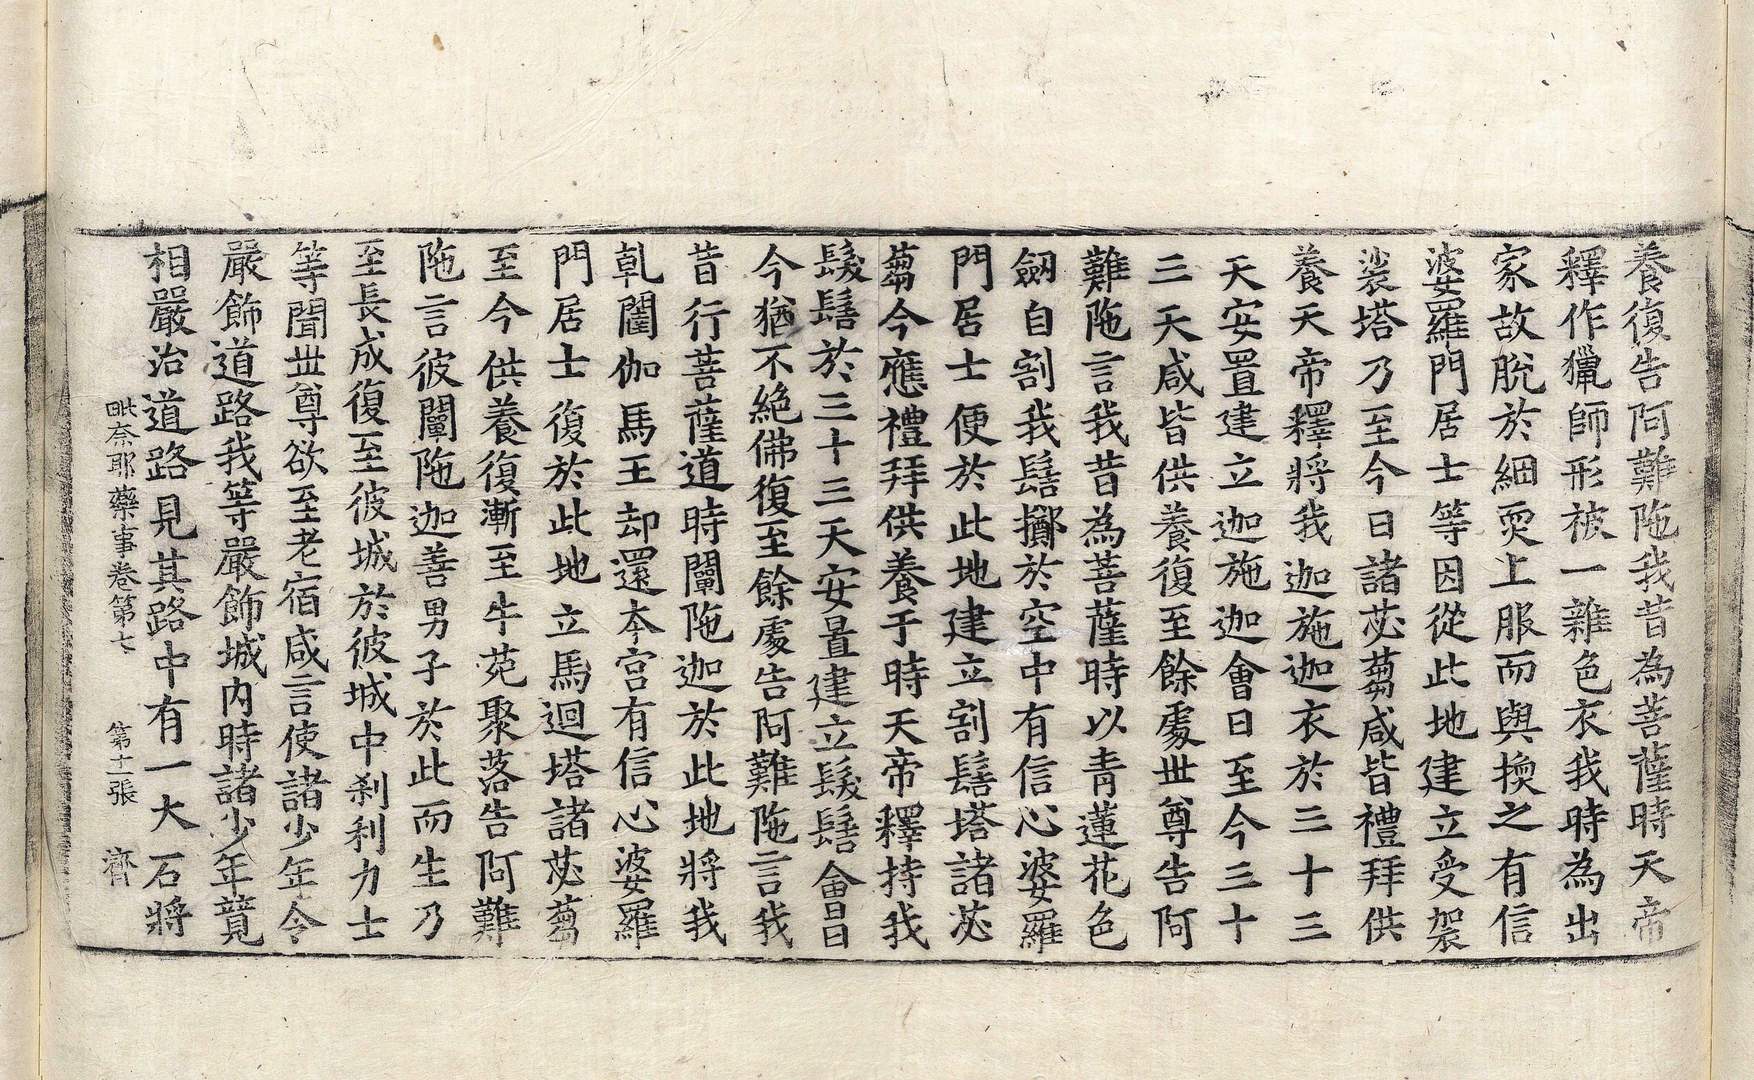 養復告阿難陁我昔為菩薩時天帝
釋作獵師形被一雜色衣我時為出
家故脫於細耎上服而與換之有信
婆羅門居士等因從此地建立受袈
裟塔乃至今日諸苾蒭咸皆禮拜供
養天帝釋將我迦施迦衣於三十三
天安置建立迦施迦會日至今三十
三天咸皆供養復至餘處世尊告阿
難陁言我昔為菩薩時以青蓮花色
劒自割我髻擲於空中有信心婆羅
門居士便於此地建立割髻塔諸苾
蒭今應禮拜供養于時天帝釋持我
髮髻於三十三天安置建立髮髻會日
今猶不絕佛復至餘處告阿難陁言我
昔行菩薩道時闡陁迦於此地將我
乹闥伽馬王却還本宮有信心婆羅
門居士復於此地立馬迴塔諸苾蒭
至今供養復漸至牛苑聚落告阿難
陁言彼闡陁迦善男子於此而生乃
至長成復至彼城於彼城中刹利力士
等聞世尊欲至老宿咸言使諸少年令
嚴飾道路我等嚴飾城內時諸少年竟
相嚴治道路見其路中有一大石將
毗奈耶藥事卷第七 第十一張 濟